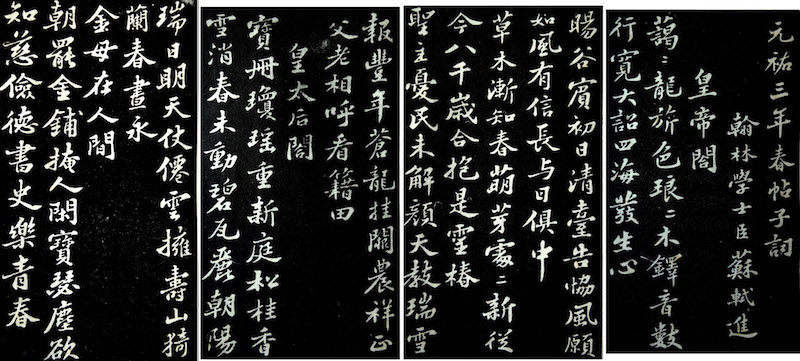 元祐三年春帖子詞
翰林學士臣蘇軾進
皇帝閤
藹〻龍旂色琅〻木鐸音數
行寬大詔四海發生心
暘谷賓初日清臺告協風願
如風有信長与日俱中
草木漸知春萌芽處〻新從
今八千歲合抱是靈椿
聖主憂民未解顏天教瑞雪
報豐年蒼龍挂闕農祥正
父老相呼看籍田
皇太后閤
寶冊瓊瑤重新庭松桂香
雪消春未動碧瓦麗朝陽
瑞日明天仗僊雲擁壽山猗
蘭春晝永
金母在人間
朝罷金鋪掩人閑寶瑟塵欲
知慈儉德書史樂青春